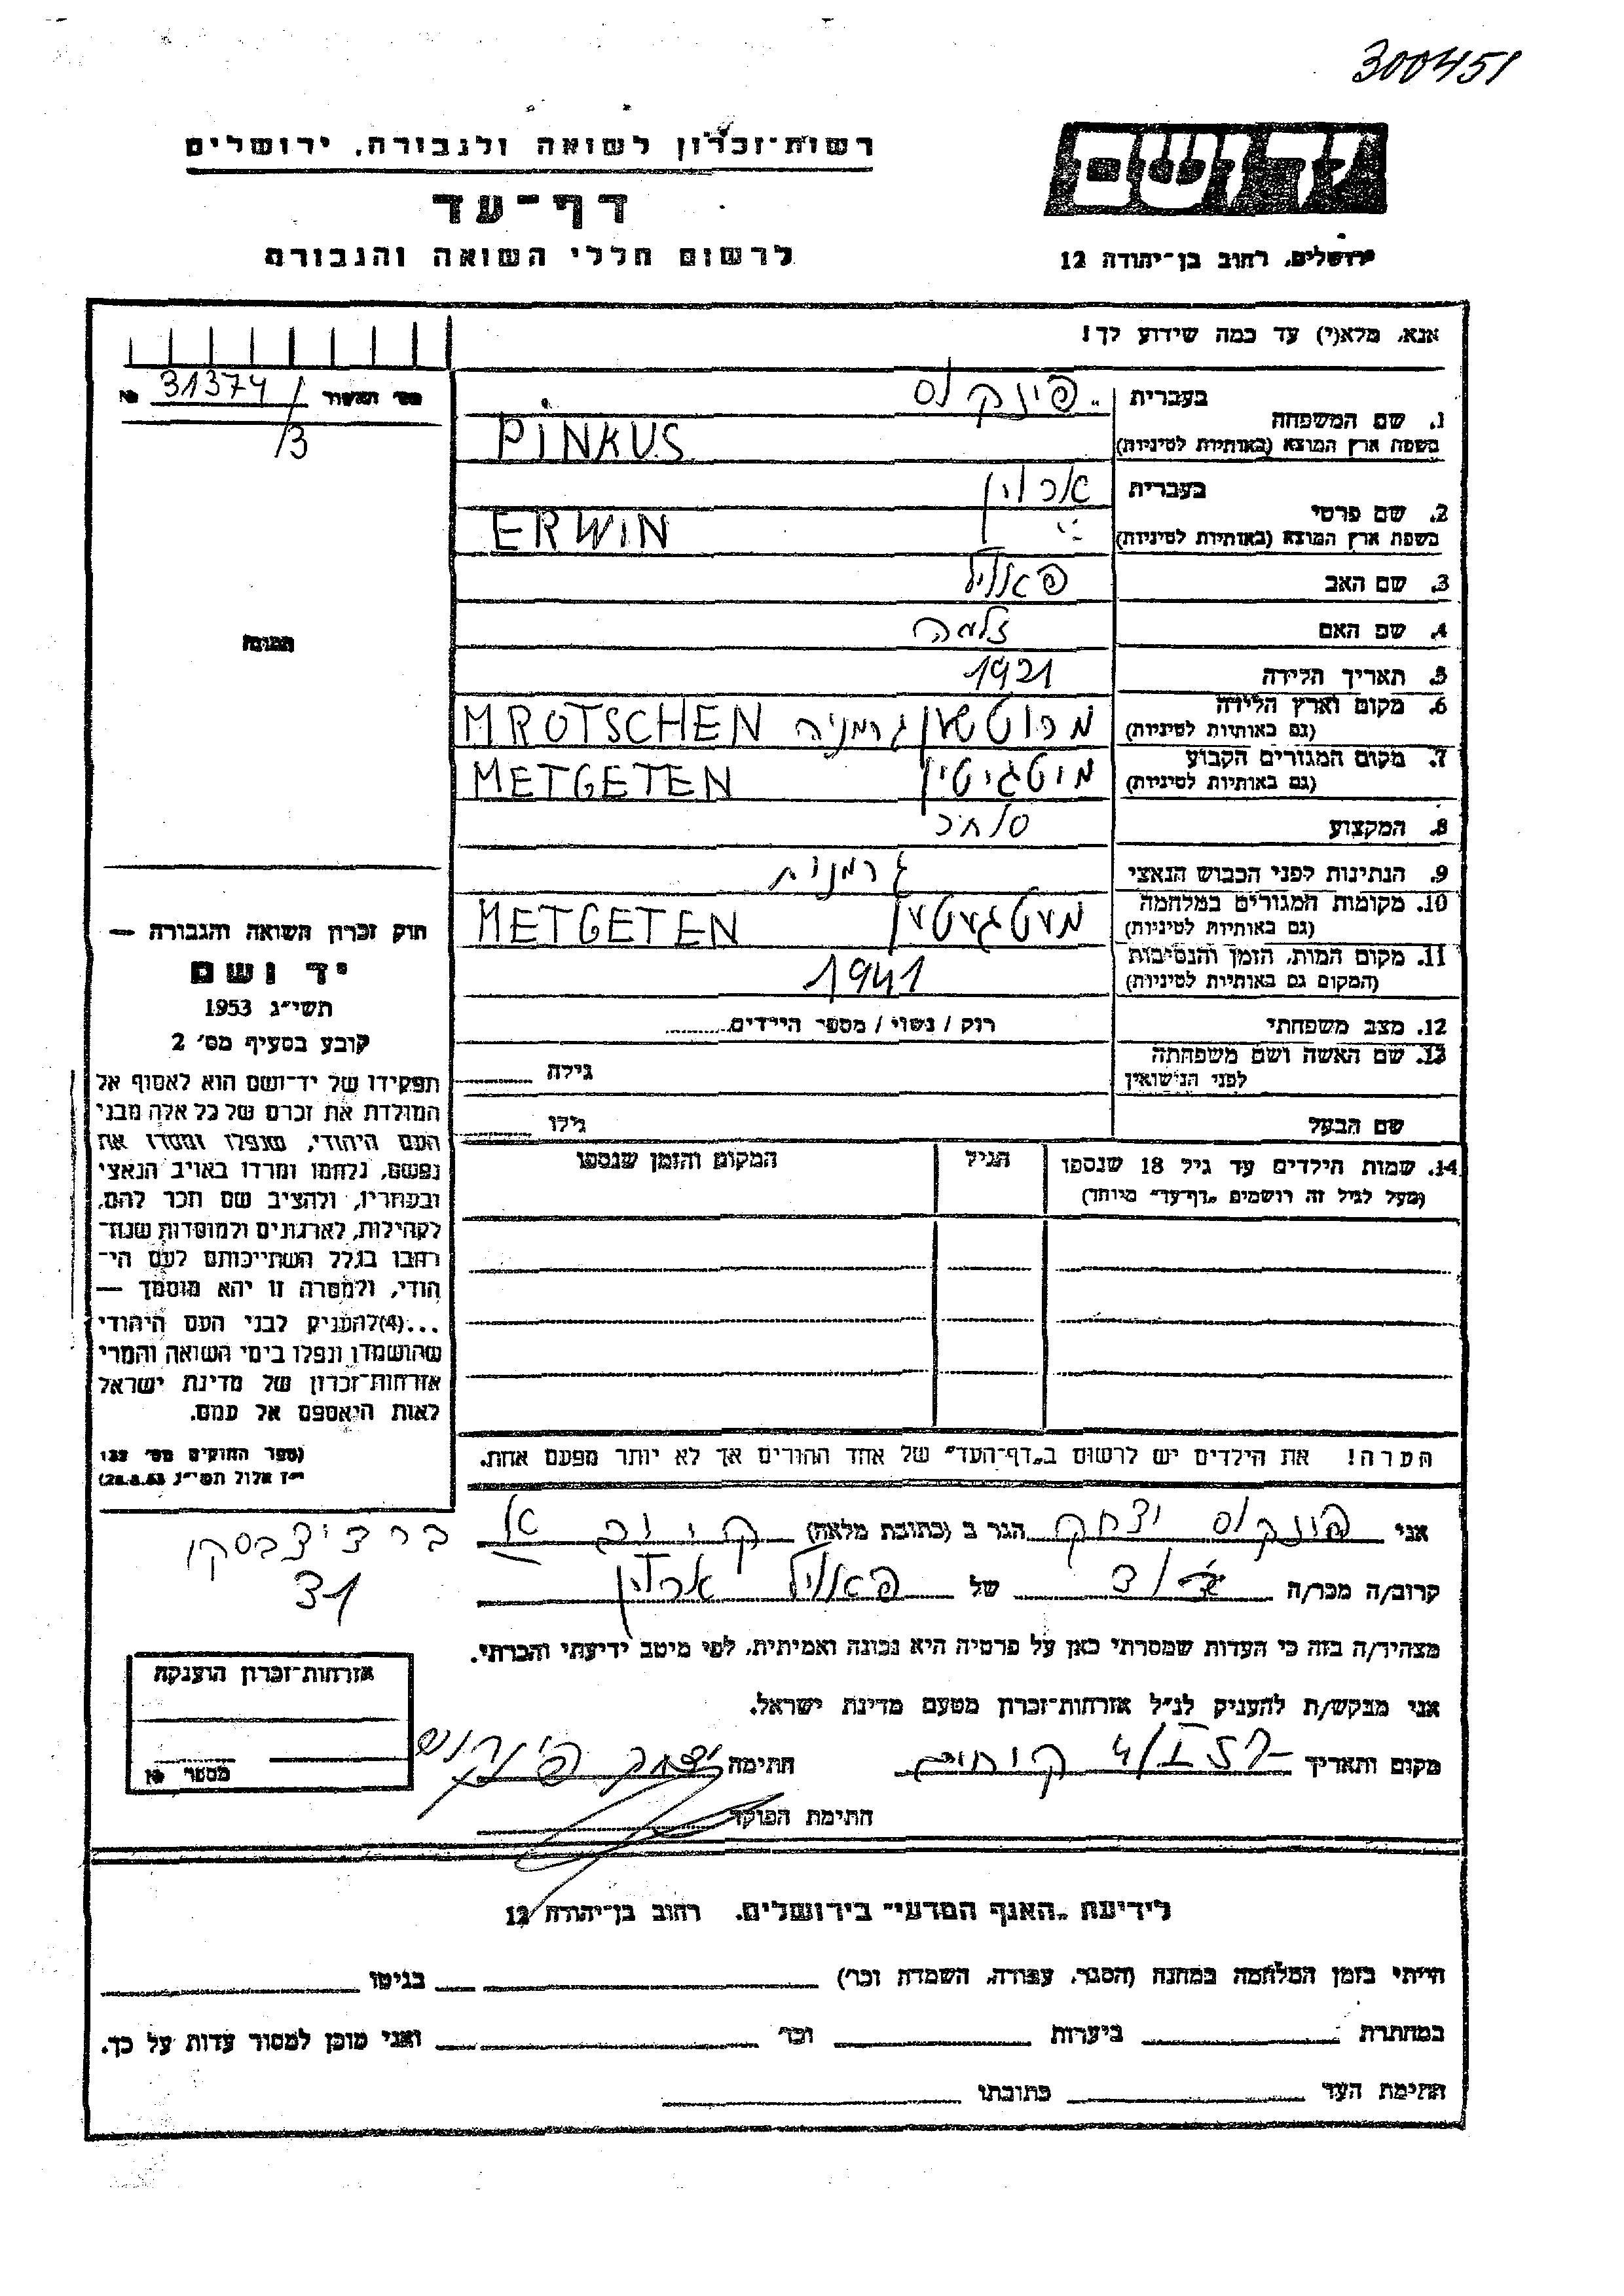 300451
רשות־זכרון לשואה ולגבורה, ירושלים
דף־עד
לרשום חללי השואה והגבורה
יד ושם
ירושלים, רחוב בן־יהודה 12
אנא, מלא(י) עד כמה שידוע לך!
מס' האשור 31374/3 №
1. שם המשפחה בעברית פינקוס
בשפת ארץ המוצא (באותיות לטיניות) PINKUS
2. שם פרטי בעברית ארוין
בשפת ארץ המוצא (באותיות לטיניות) ERWIN
3. שם האב פאול
4. שם האם זלמה
5. תאריך הלידה 1921
6. מקום וארץ הלידה (גם באותיות לטיניות) מרוטשן גרמניה MROTSCHEN
7. מקום המגורים הקבוע (גם באותיות לטיניות) מיטגיטין METGETEN
8. המקצוע סוחר
9. הנתינות לפני הכבוש הנאצי גרמנית
10. מקומות המגורים במלחמה (גם באותיות לטיניות) מיטגיטין METGETEN
11. מקום המות, הזמן והנסיבות (המקום גם באותיות לטיניות) 1941
12. מצב משפחתי רווק / נשוי / מספר הילדים
13. שם האשה ושם משפחתה לפני הנישואין גילה
שם הבעל גילו
14. שמות הילדים עד גיל 18 שנספו הגיל המקום והזמן שנספו
(מעל לגיל זה רושמים "דף־עד" מיוחד)
הערה! את הילדים יש לרשום ב"דף־העד" של אחד ההורים אך לא יותר מפעם אחת.
התמונה
חוק זכרון השואה והגבורה —
יד ושם
תשי"ג 1953
קובע בסעיף מס' 2
תפקידו של יד־ושם הוא לאסוף אל
המולדת את זכרם של כל אלה מבני
העם היהודי, שנפלו ומסרו את
נפשם, נלחמו ומרדו באויב הנאצי
ובעוזריו, ולהציב שם וזכר להם,
לקהילות, לארגונים ולמוסדות שנח־
רבו בגלל השתייכותם לעם הי־
הודי, ולמטרה זו יהא מוסמך —
...(4) להעניק לבני העם היהודי
שהושמדו ונפלו בימי השואה והמרי
אזרחות־זכרון של מדינת ישראל
לאות היאספם אל עמם.
(ספר החוקים מס' 132
י"ז אלול תשי"ג 28.8.53)
אני פינקוס יצחק הגר ב (כתובת מלאה) ברציצבסקי 31
קרוב/ה מכר/ה של פאול ארוין
מצהיר/ה בזה כי העדות שמסרתי כאן על פרטיה היא נכונה ואמיתית, לפי מיטב ידיעתי והכרתי.
אני מבקש/ת להעניק לנ"ל אזרחות־זכרון מטעם מדינת ישראל.
מקום ותאריך חתימה יצחק פינקוס
חתימת הפוקד
אזרחות־זכרון הוענקה
מספר №
לידיעת "האגף המדעי" בירושלים. רחוב בן־יהודה 12
הייתי בזמן המלחמה במחנה (הסגר, עבודה, השמדה וכו') בגיטו
במחתרת ביערות וכו' ואני מוכן למסור עדות על כך.
חתימת העד כתובתו